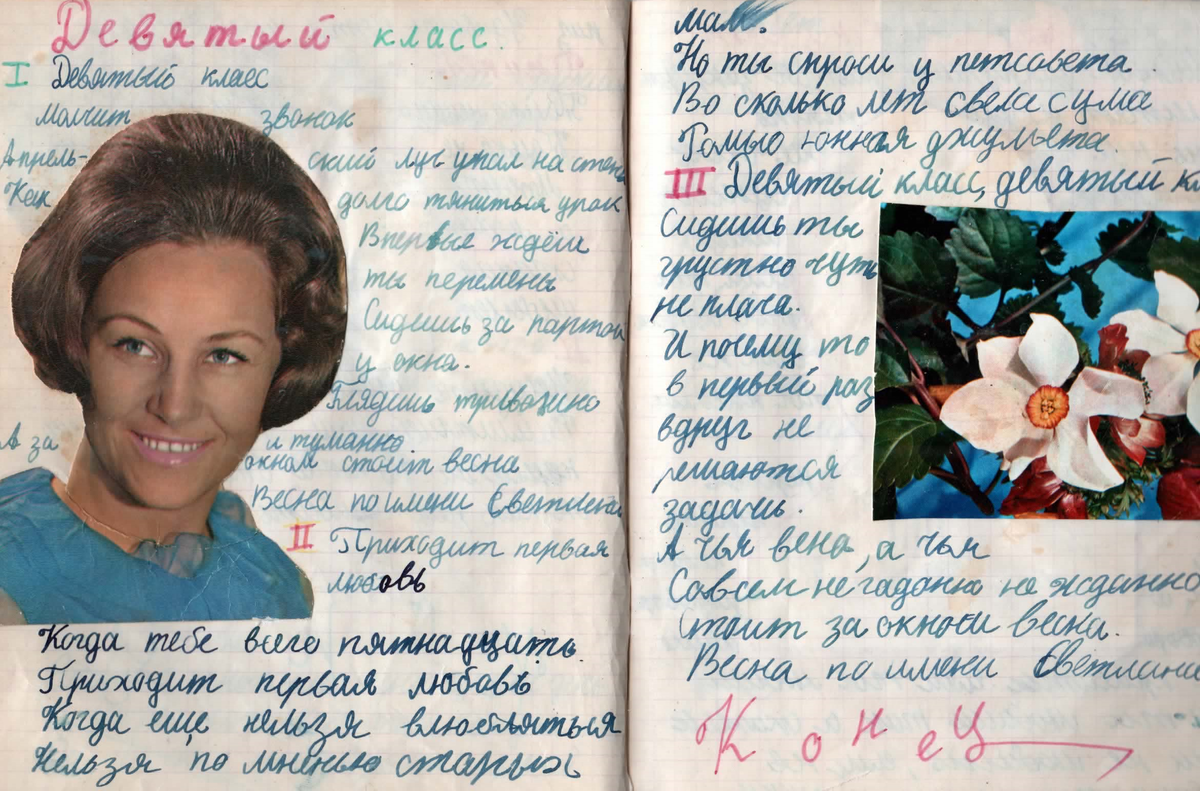 Девятый класс.
I Девятый класс
молчит звонок
Апрель- ский луч упал на стену
Как долго тяниться урок
Впервые ждёш
ты перемены
Сидишь за партой
у окна.
Глядишь тривожно
и туманно
А за окном стоит весна
Весна по имени Светлана
II Приходит первая
любовь
Когда тебе всего пятнадцать
Приходит первая любовь
Когда еще нельзя влюбляться
Нельзя по мненью старых
мам.
Но ты спроси у петсовета.
Во сколько лет свела с ума
Ромыо юнная джульета.
III Девятый класс, девятый кл
Сидишь ты
грустно чуть
не плача.
И почему то
в первый раз
вдруг не
решаются
задачи.
А чья вена, а чья
Совсем не гаданно не жданно
Стоит за окном весна.
Весна по имени Светлана
Конец